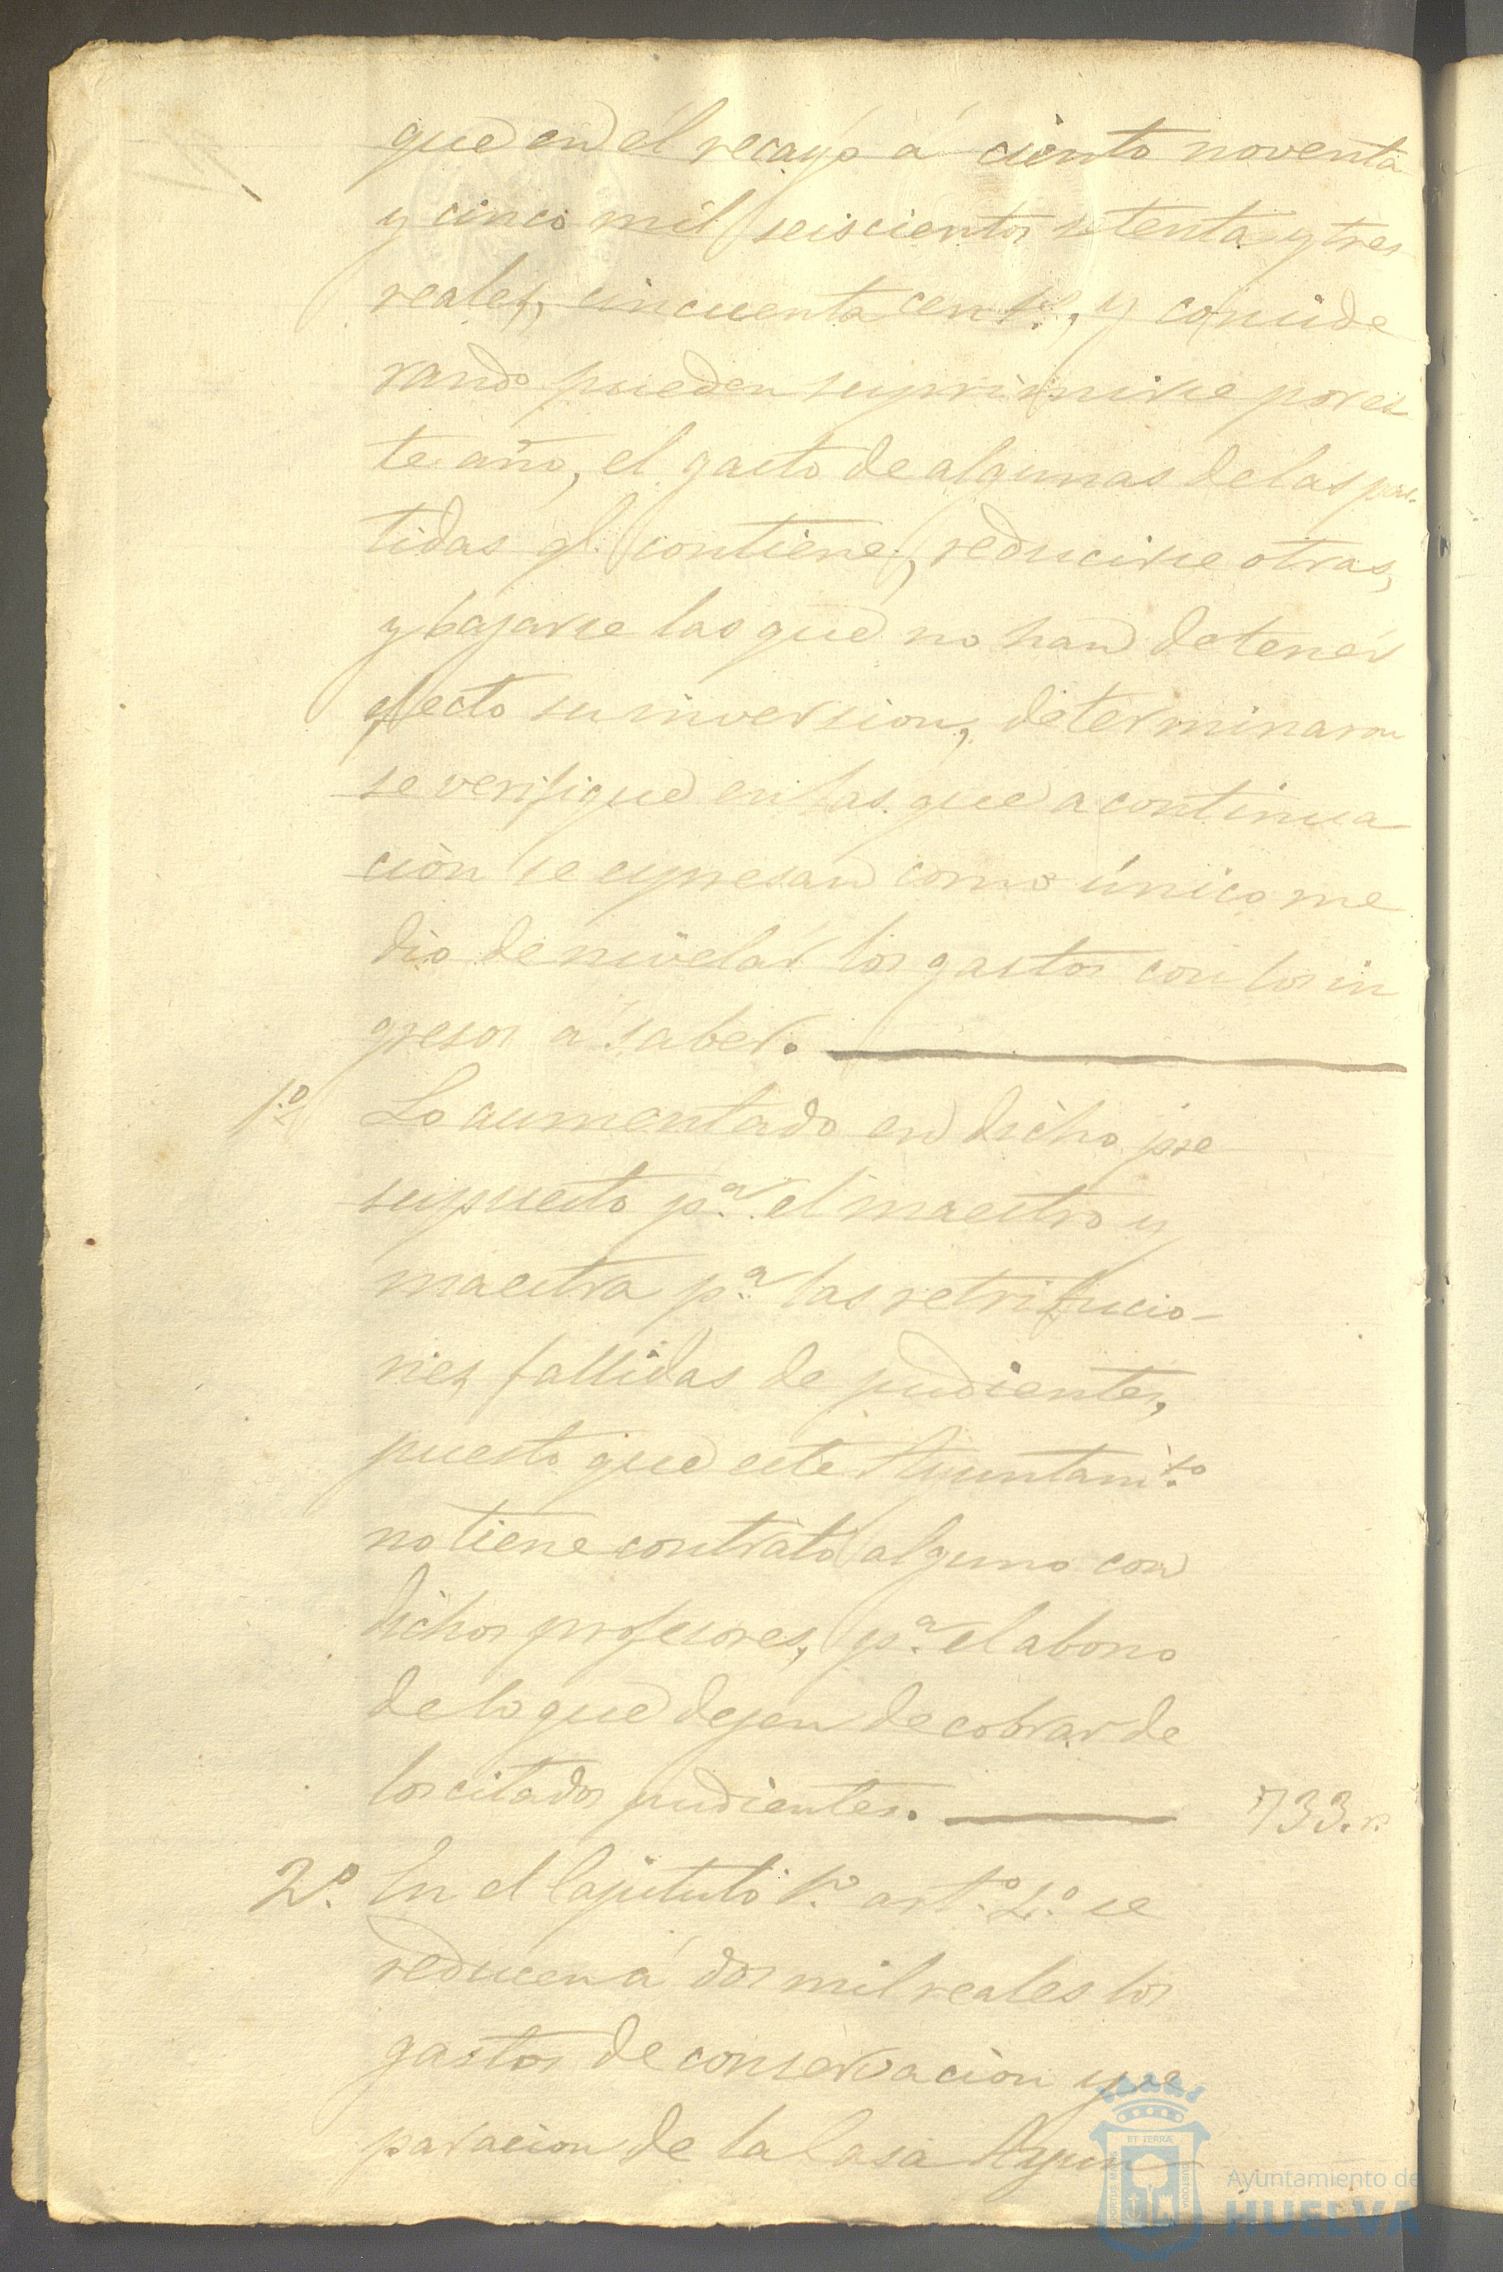 que en el recayó a ciento noventa
y cinco mil seiscientos setenta y tres
reales, cincuenta cent.s, y conside
rando pueden suprimirse por es
te año, el gasto de algunas de las par
tidas q.e contiene, reducirse otras,
y bajarse las que no han de tener
efecto su inversion, determinaron
se verifique en las que a continua
ción se espresan como único me
dio de nivelar los gastos con los in
gresos a saber.
1.º Lo aumentado en dicho pre
supuesto p.a el maestro y
maestra p.a las retribucio-
nes fallidas de pudientes,
puesto que este Ayuntam.to
no tiene contrato alguno con
dichos profesores, p.a el abono
de lo que dejen de cobrar de
los citados pudientes. 733. r.
2.º En el Capitulo 1.º art.º 2.º se
reducen á dos mil reales los
gastos de conservación y re
paracion de la Casa Ayun
ET TERRÆ
Ayuntamiento de
HUELVA